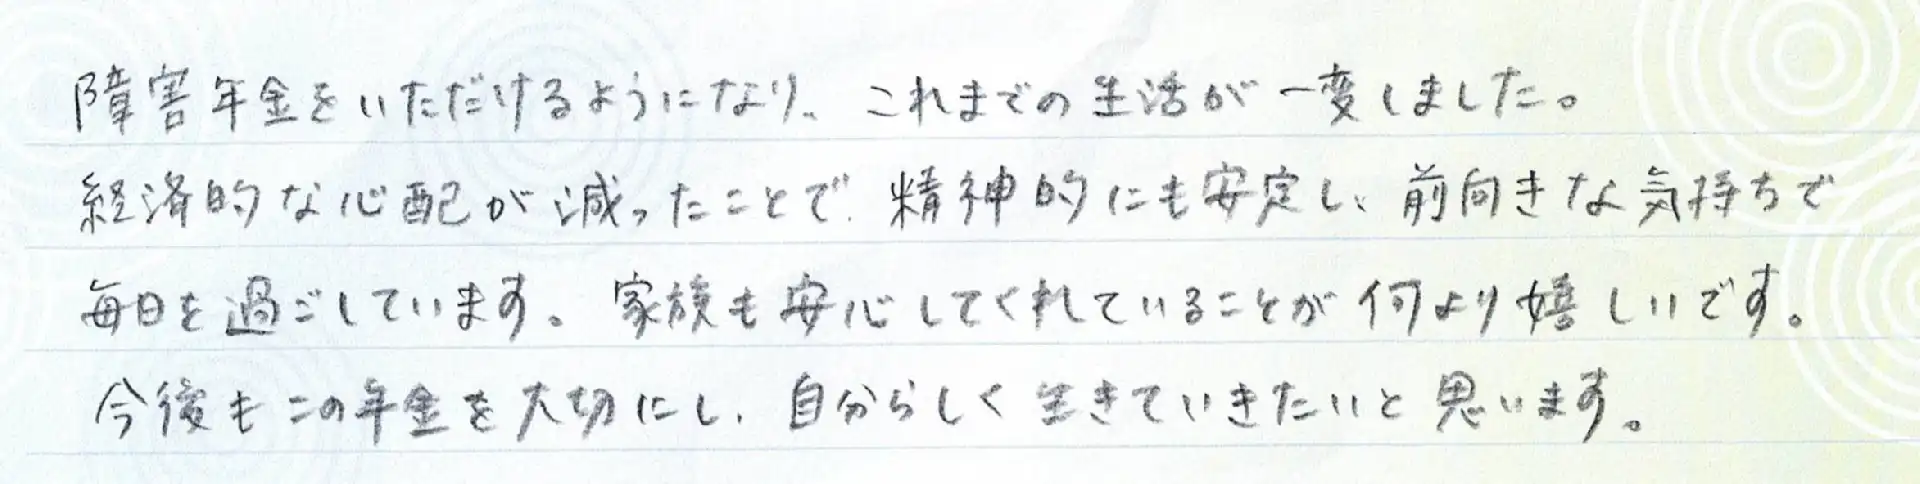 障害年金をいただけるようになり、これまでの生活が一変しました。
経済的な心配が減ったことで、精神的にも安定し、前向きな気持ちで
毎日を過ごしています。家族も安心してくれていることが何より嬉しいです。
今後もこの年金を大切にし、自分らしく生きていきたいと思います。